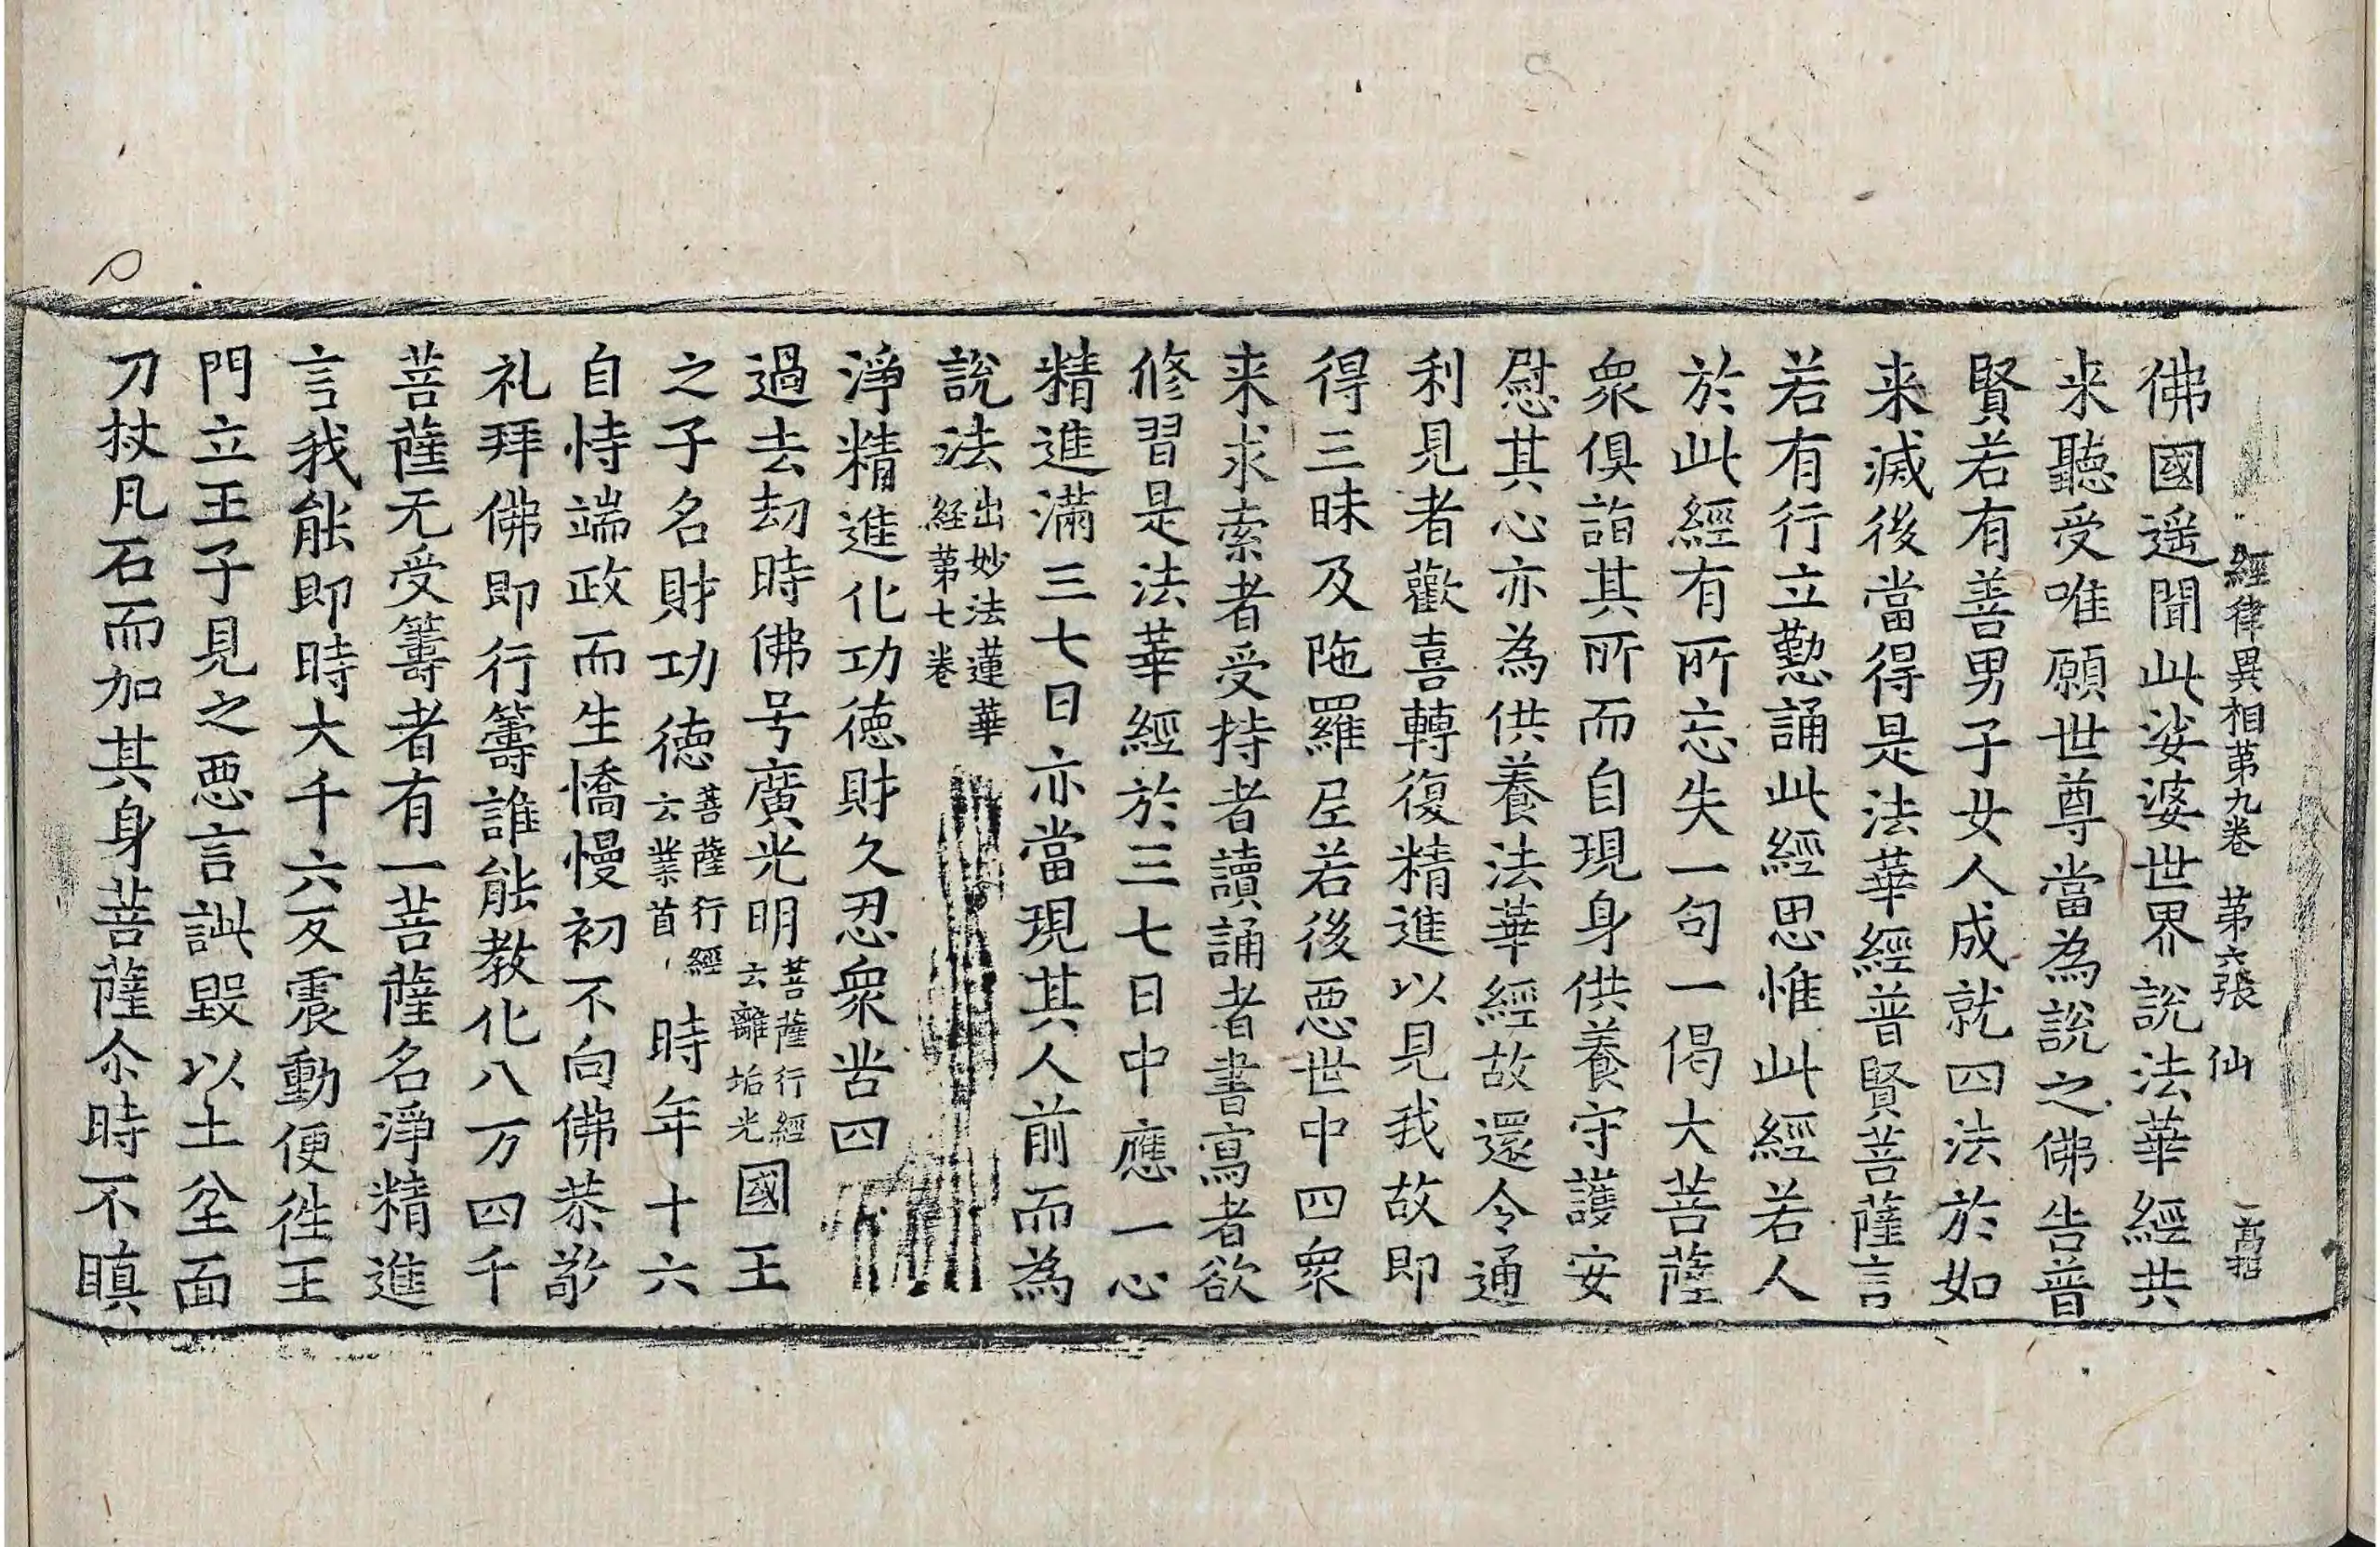 經律異相苐九卷 苐六張 仙
佛國遥聞此娑婆世界說法華經共
来聽受唯願世尊當為說之佛告普
賢若有善男子女人成就四法於如
来滅後當得是法華經普賢菩薩言
若有行立懃誦此經思惟此經若人
於此經有所忘失一句一偈大菩薩
衆俱詣其所而自現身供養守護安
慰其心亦為供養法華經故還令通
利見者歡喜轉復精進以見我故即
得三昧及陁羅尼若後惡世中四衆
来求索者受持者讀誦者書寫者欲
修習是法華經於三七日中應一心
精進滿三七日亦當現其人前而為
說法出妙法蓮華經苐七卷
淨精進化功德財久忍衆呰四
過去劫時佛号廣光明菩薩行經云離垢光國王
之子名財功德菩薩行經云業首時年十六
自恃端政而生憍慢初不向佛恭敬
礼拜佛即行籌誰能教化八万四千
菩薩无受籌者有一菩薩名淨精進
言我能即時大千六反震動便徃王
門立王子見之惡言誹毀以土坌面
刀杖凡石而加其身菩薩尒時不瞋